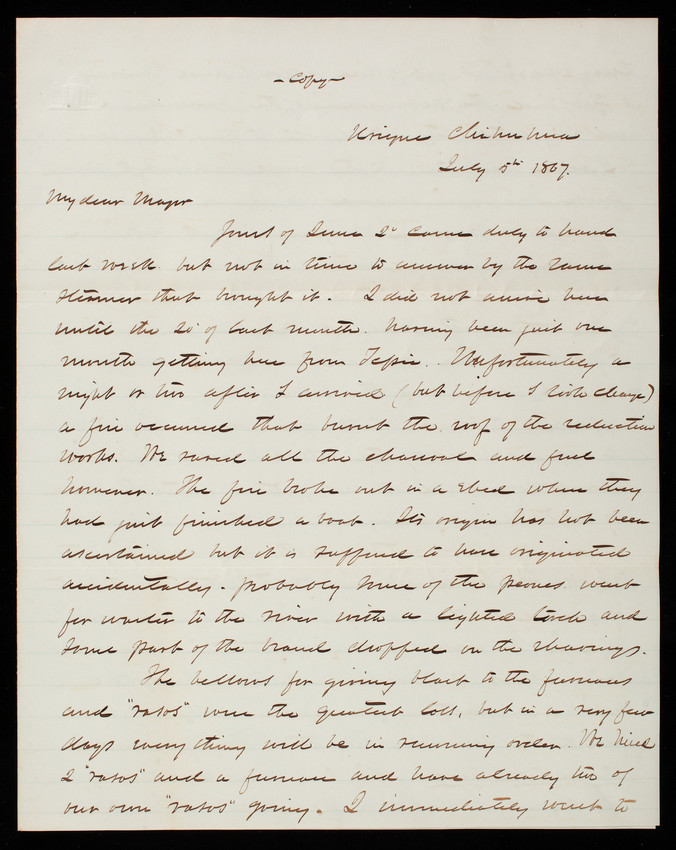 - Copy -
Urique Chihuahua
July 5th 1867.
My dear Major
Yours of June 2d came duly to hand
last week. but not in time to answer by the same
steamer that brought it. I did not arrive here
until the 20 of last month. having been just one
month getting here from Tepic. Unfortunately a
night or two after I arrived (but before I took charge)
a fire occurred that burnt the roof of the reduction
works. We saved all the charcoal and fuel
however. The fire broke out in a shed where they
had just finished a boat. Its origin has not been
ascertained but it is supposed to have originated
accidentally - probably some of the peones went
for water to the river with a lighted torch and
some part of the brand dropped on the shavings.
The bellows for giving blast to the furnaces
and "vasos" were the greatest loss, but in a very few
days everything will be in running order. We hired
2 "vasos" and a furnace and have already two of
our own "vasos" going. I immediately went to